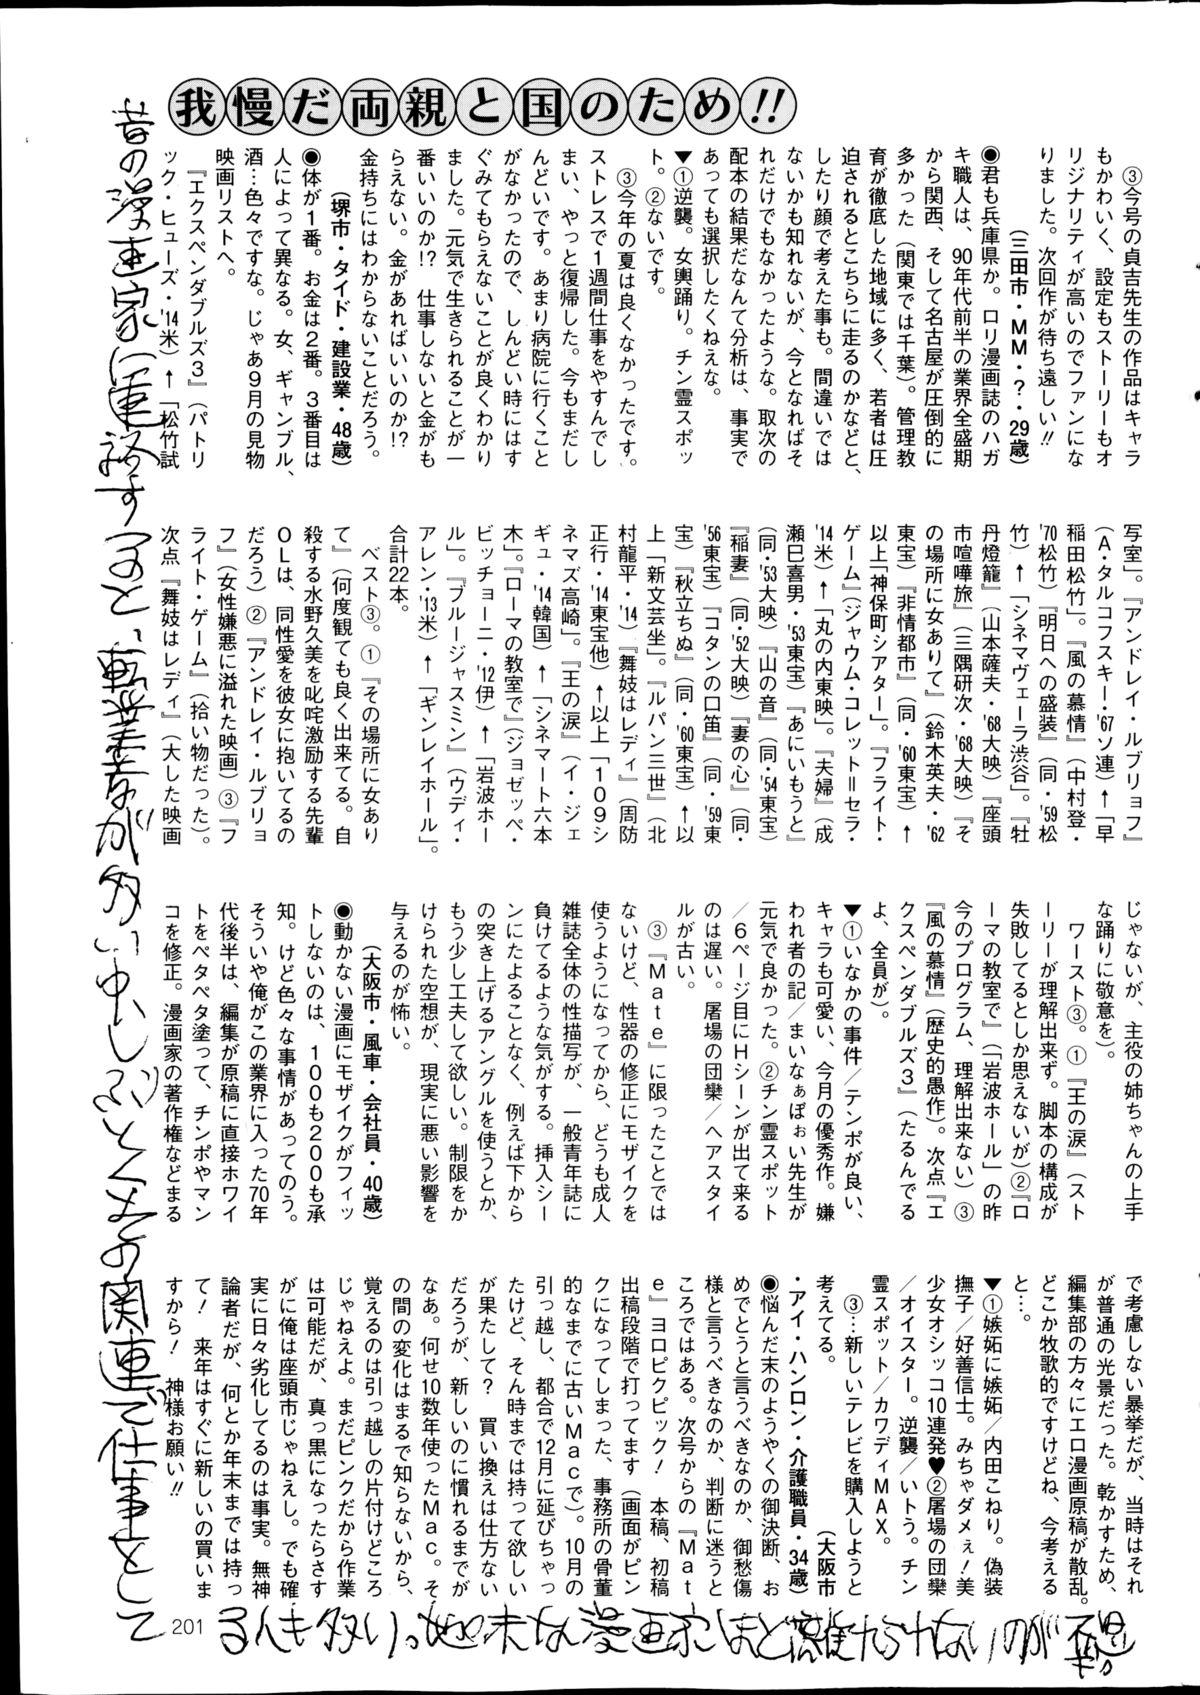 我慢だ両親と国のため!!
③今号の貞吉先生の作品はキャラ
もかわいく、設定もストーリーもオ
リジナリティが高いのでファンにな
りました。次回作が待ち遠しい!!
(三田市・MM・?・29歳)
◉君も兵庫県か。ロリ漫画誌のハガ
キ職人は、90年代前半の業界全盛期
から関西、そして名古屋が圧倒的に
多かった(関東では千葉)。管理教
育が徹底した地域に多く、若者は圧
迫されるとこちらに走るのかなどと、
したり顔で考えた事も。間違いでは
ないかも知れないが、今となればそ
れだけでもなかったような。取次の
配本の結果だなんて分析は、事実で
あっても選択したくねえな。
▼①逆襲。女輿踊り。チン霊スポッ
ト。②ないです。
③今年の夏は良くなかったです。
ストレスで1週間仕事をやすんでし
まい、やっと復帰した。今もまだし
んどいです。あまり病院に行くこと
がなかったので、しんどい時にはす
ぐみてもらえないことが良くわかり
ました。元気で生きられることが一
番いいのか!? 仕事しないと金がも
らえない。金があればいいのか!?
金持ちにはわからないことだろう。
(堺市・タイド・建設業・48歳)
◉体が1番。お金は2番。3番目は
人によって異なる。女、ギャンブル、
酒…色々ですな。じゃあ9月の見物
映画リストへ。
『エクスペンダブルズ3』(パトリ
ック・ヒューズ・'14米)↑「松竹試
写室」。『アンドレイ・ルブリョフ』
(A・タルコフスキー・'67ソ連)↑「早
稲田松竹」。『風の慕情』(中村登・
'70松竹)『明日への盛装』(同・'59松
竹)↑「シネマヴェーラ渋谷」。『牡
丹燈籠』(山本薩夫・'68大映)『座頭
市喧嘩旅』(三隅研次・'68大映)『そ
の場所に女ありて』(鈴木英夫・'62
東宝)『非情都市』(同・'60東宝)↑
以上「神保町シアター」。『フライト・
ゲーム』(ジャウム・コレット=セラ・
'14米)↑「丸の内東映」。『夫婦』(成
瀬巳喜男・'53東宝)『あにいもうと』
(同・'53大映)『山の音』(同・'54東宝)
『稲妻』(同・'52大映)『妻の心』(同・
'56東宝)『コタンの口笛』(同・'59東
宝)『秋立ちぬ』(同・'60東宝)↑以
上「新文芸坐」。『ルパン三世』(北
村龍平・'14)『舞妓はレディ』(周防
正行・'14東宝他)↑以上「109シ
ネマズ高崎」。『王の涙』(イ・ジェ
ギュ・'14韓国)↑「シネマート六本
木」。『ローマの教室で』(ジョゼッペ・
ピッチョーニ・'12伊)↑「岩波ホー
ル」。『ブルージャスミン』(ウディ・
アレン・'13米)↑「ギンレイホール」。
合計22本。
ベスト③。①『その場所に女あり
て』(何度観ても良く出来てる。自
殺する水野久美を叱咤激励する先輩
OLは、同性愛を彼女に抱いてるの
だろう)②『アンドレイ・ルブリョ
フ』(女性嫌悪に溢れた映画)③『フ
ライト・ゲーム』(拾い物だった)。
次点『舞妓はレディ』(大した映画
じゃないが、主役の姉ちゃんの上手
な踊りに敬意を)。
ワースト③。①『王の涙』(スト
ーリーが理解出来ず。脚本の構成が
失敗してるとしか思えないが)②『ロ
ーマの教室で』(「岩波ホール」の昨
今のプログラム、理解出来ない)③
『風の慕情』(歴史的愚作)。次点『エ
クスペンダブルズ3』(たるんでる
よ、全員が)。
▼①いなかの事件/テンポが良い、
キャラも可愛い、今月の優秀作。嫌
われ者の記/まいなぁぼぉい先生が
元気で良かった。②チン霊スポット
/6ページ目にHシーンが出て来る
のは遅い。屠場の団欒/ヘアスタイ
ルが古い。
③『Mate』に限ったことでは
ないけど、性器の修正にモザイクを
使うようになってから、どうも成人
雑誌全体の性描写が、一般青年誌に
負けてるような気がする。挿入シー
ンにたよることなく、例えば下から
の突き上げるアングルを使うとか、
もう少し工夫して欲しい。制限をか
けられた空想が、現実に悪い影響を
与えるのが怖い。
(大阪市・風車・会社員・40歳)
◉動かない漫画にモザイクがフィッ
トしないのは、100も200も承
知。けど色々な事情があってのう。
そういや俺がこの業界に入った70年
代後半は、編集が原稿に直接ホワイ
トをペタペタ塗って、チンポやマン
コを修正。漫画家の著作権などまる
で考慮しない暴挙だが、当時はそれ
が普通の光景だった。乾かすため、
編集部の方々にエロ漫画原稿が散乱。
どこか牧歌的ですけどね、今考える
と…。
▼①嫉妬に嫉妬/内田こねり。偽装
撫子/好善信士。みちゃダメぇ!美
少女オシッコ10連発♥②屠場の団欒
/オイスター。逆襲/いトう。チン
霊スポット/カワディMAX。
③…新しいテレビを購入しようと
考えてる。
(大阪市
・アイ・ハンロン・介護職員・34歳)
◉悩んだ末のようやくの御決断、お
めでとうと言うべきなのか、御愁傷
様と言うべきなのか、判断に迷うと
ころではある。次号からの『Mat
e』ヨロピクピック! 本稿、初稿
出稿段階で打ってます(画面がピン
クになってしまった、事務所の骨董
的なまでに古いMacで)。10月の
引っ越し、都合で12月に延びちゃっ
たけど、そん時までは持って欲しい
が果たして? 買い換えは仕方ない
だろうが、新しいのに慣れるまでが
なあ。何せ10数年使ったMac。そ
の間の変化はまるで知らないから、
覚えるのは引っ越しの片付けどころ
じゃねえよ。まだピンクだから作業
は可能だが、真っ黒になったらさす
がに俺は座頭市じゃねえし。でも確
実に日々劣化してるのは事実。無神
論者だが、何とか年末までは持っ
て! 来年はすぐに新しいの買いま
すから! 神様お願い!!
昔の漫画家に連絡すると、転業者が多い中、しぶとくその関連で仕事をして
るんも多い。如来な漫画家ほど離れられないのが不思ギ。
201